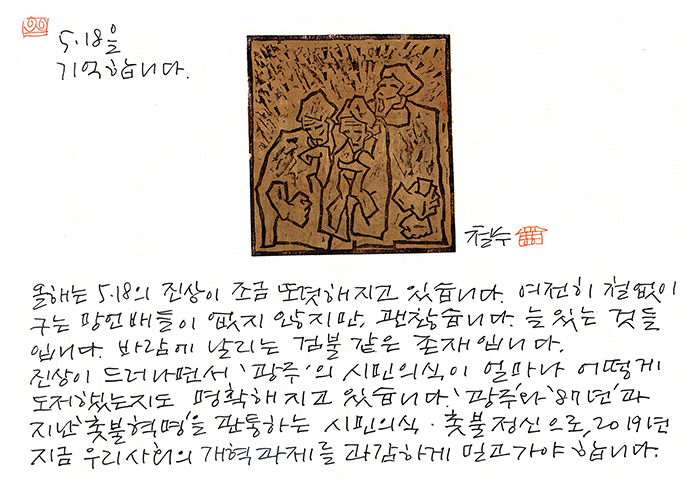 5·18을
기억합니다.
철수
올해는 5·18의 진상이 조금 또렷해지고 있습니다. 여전히 철없이
구는 망언배들이 없지 않지만, 괜찮습니다. 늘 있는 것들
입니다. 바람에 날리는 검불 같은 존재입니다.
진상이 드러나면서 '광주'의 시민의식이 얼마나 어떻게
도저했는지도 명확해지고 있습니다. '광주'와 '87년'과
지난 '촛불혁명'을 관통하는 시민의식·촛불정신으로, 2019년
지금 우리사회의 개혁과제를 과감하게 밀고가야 합니다.